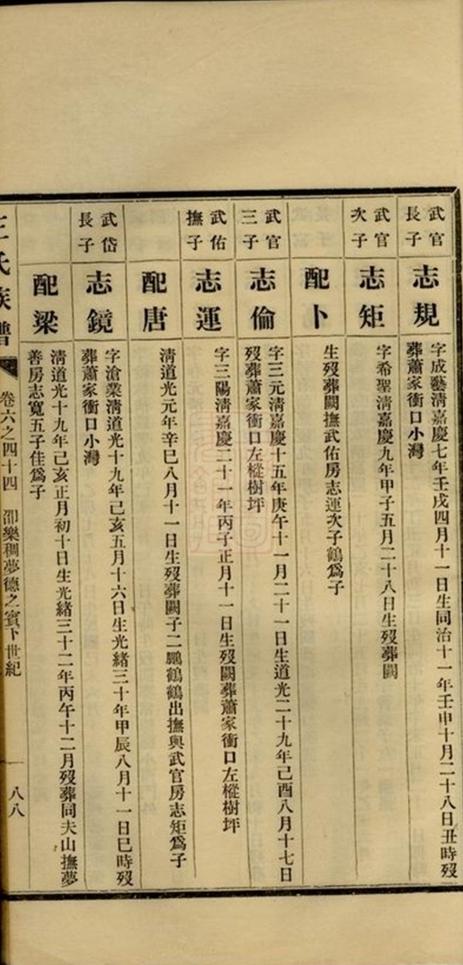 武官
長子
志規
字成藝淸嘉慶七年壬戌四月十一日生同治十一年壬申十月二十八日丑時歿
葬蕭家衝口小灣
武官
次子
志矩
字希聖淸嘉慶九年甲子五月二十八日生歿葬闕
配卜
生歿葬闕撫武佑房志運次子鶴爲子
武官
三子
志倫
字三元淸嘉慶十五年庚午十一月二十一日生道光二十九年己酉八月十七日
歿葬蕭家衝口左樅樹坪
武佑
撫子
志運
字三陽淸嘉慶二十一年丙子正月十一日生歿闕葬蕭家衝口左樅樹坪
配唐
淸道光元年辛巳八月十一日生歿葬闕子二鵬鶴鶴出撫與武官房志矩爲子
武岱
長子
志鏡
字滄業淸道光十九年己亥五月十六日生光緒三十年甲辰八月十一日巳時歿
葬蕭家衝口小灣
配梁
淸道光十九年己亥正月初十日生光緒三十二年丙午十二月歿葬同夫山撫夢
善房志寬五子佳爲子
王氏族譜
卷六之四十四
卲樂稠夢德之賓下世紀
八八